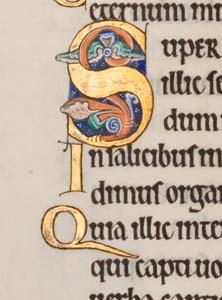 eternum mi
SUPER
illic se
dum
In salicibus m
dimus organ
Quia illic inte
qui captiuo
uerba cantio